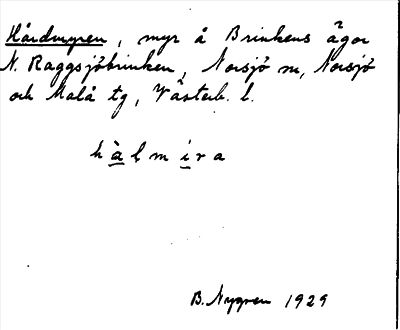 Hårdmyren, myr å Brinkens ägor
N. Raggsjöbrinken, Norsjö sn, Norsjö
och Malå tg, Västerb. l.
hàlmira
B. Nygren 1929